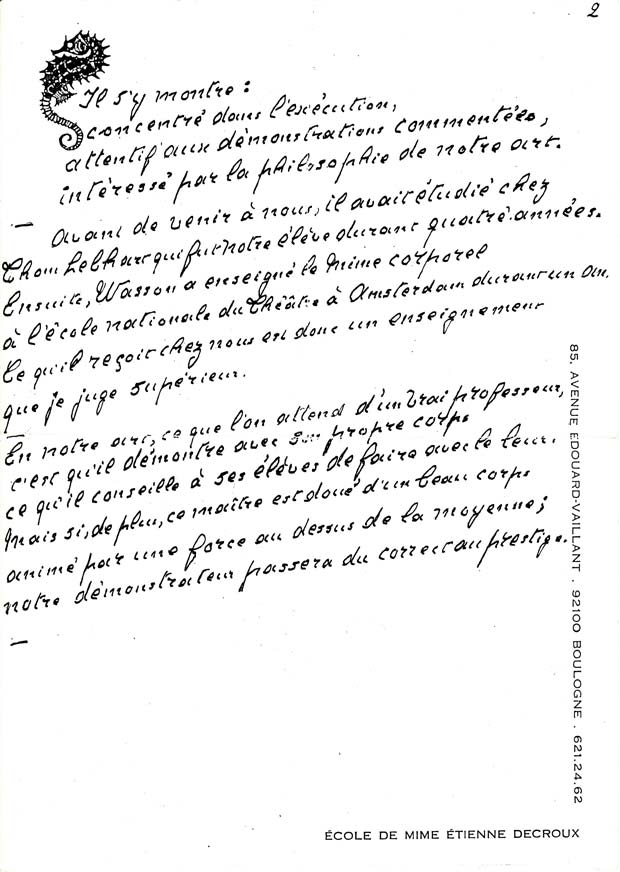 2
Il s'y montre :
concentré dans l'exécution,
attentif aux démonstrations commentées,
intéressé par la philosophie de notre art.
— Avant de venir à nous, il avait étudié chez
Thom Lebhart qui fut notre élève durant quatre années.
Ensuite, Wasson a enseigné le Mime corporel
à l'école nationale du Théâtre à Amsterdam durant un an.
Ce qu'il reçoit chez nous est donc un enseignement
que je juge supérieur.
—
En notre art, ce que l'on attend d'un vrai professeur,
c'est qu'il démontre avec son propre corps
ce qu'il conseille à ses élèves de faire avec le leur.
Mais si, de plus, ce maître est doué d'un beau corps
animé par une force au dessus de la moyenne ;
notre démonstrateur passera du correct au prestige.
—
85. AVENUE EDOUARD-VAILLANT . 92100 BOULOGNE . 621.24.62
ÉCOLE DE MIME ÉTIENNE DECROUX